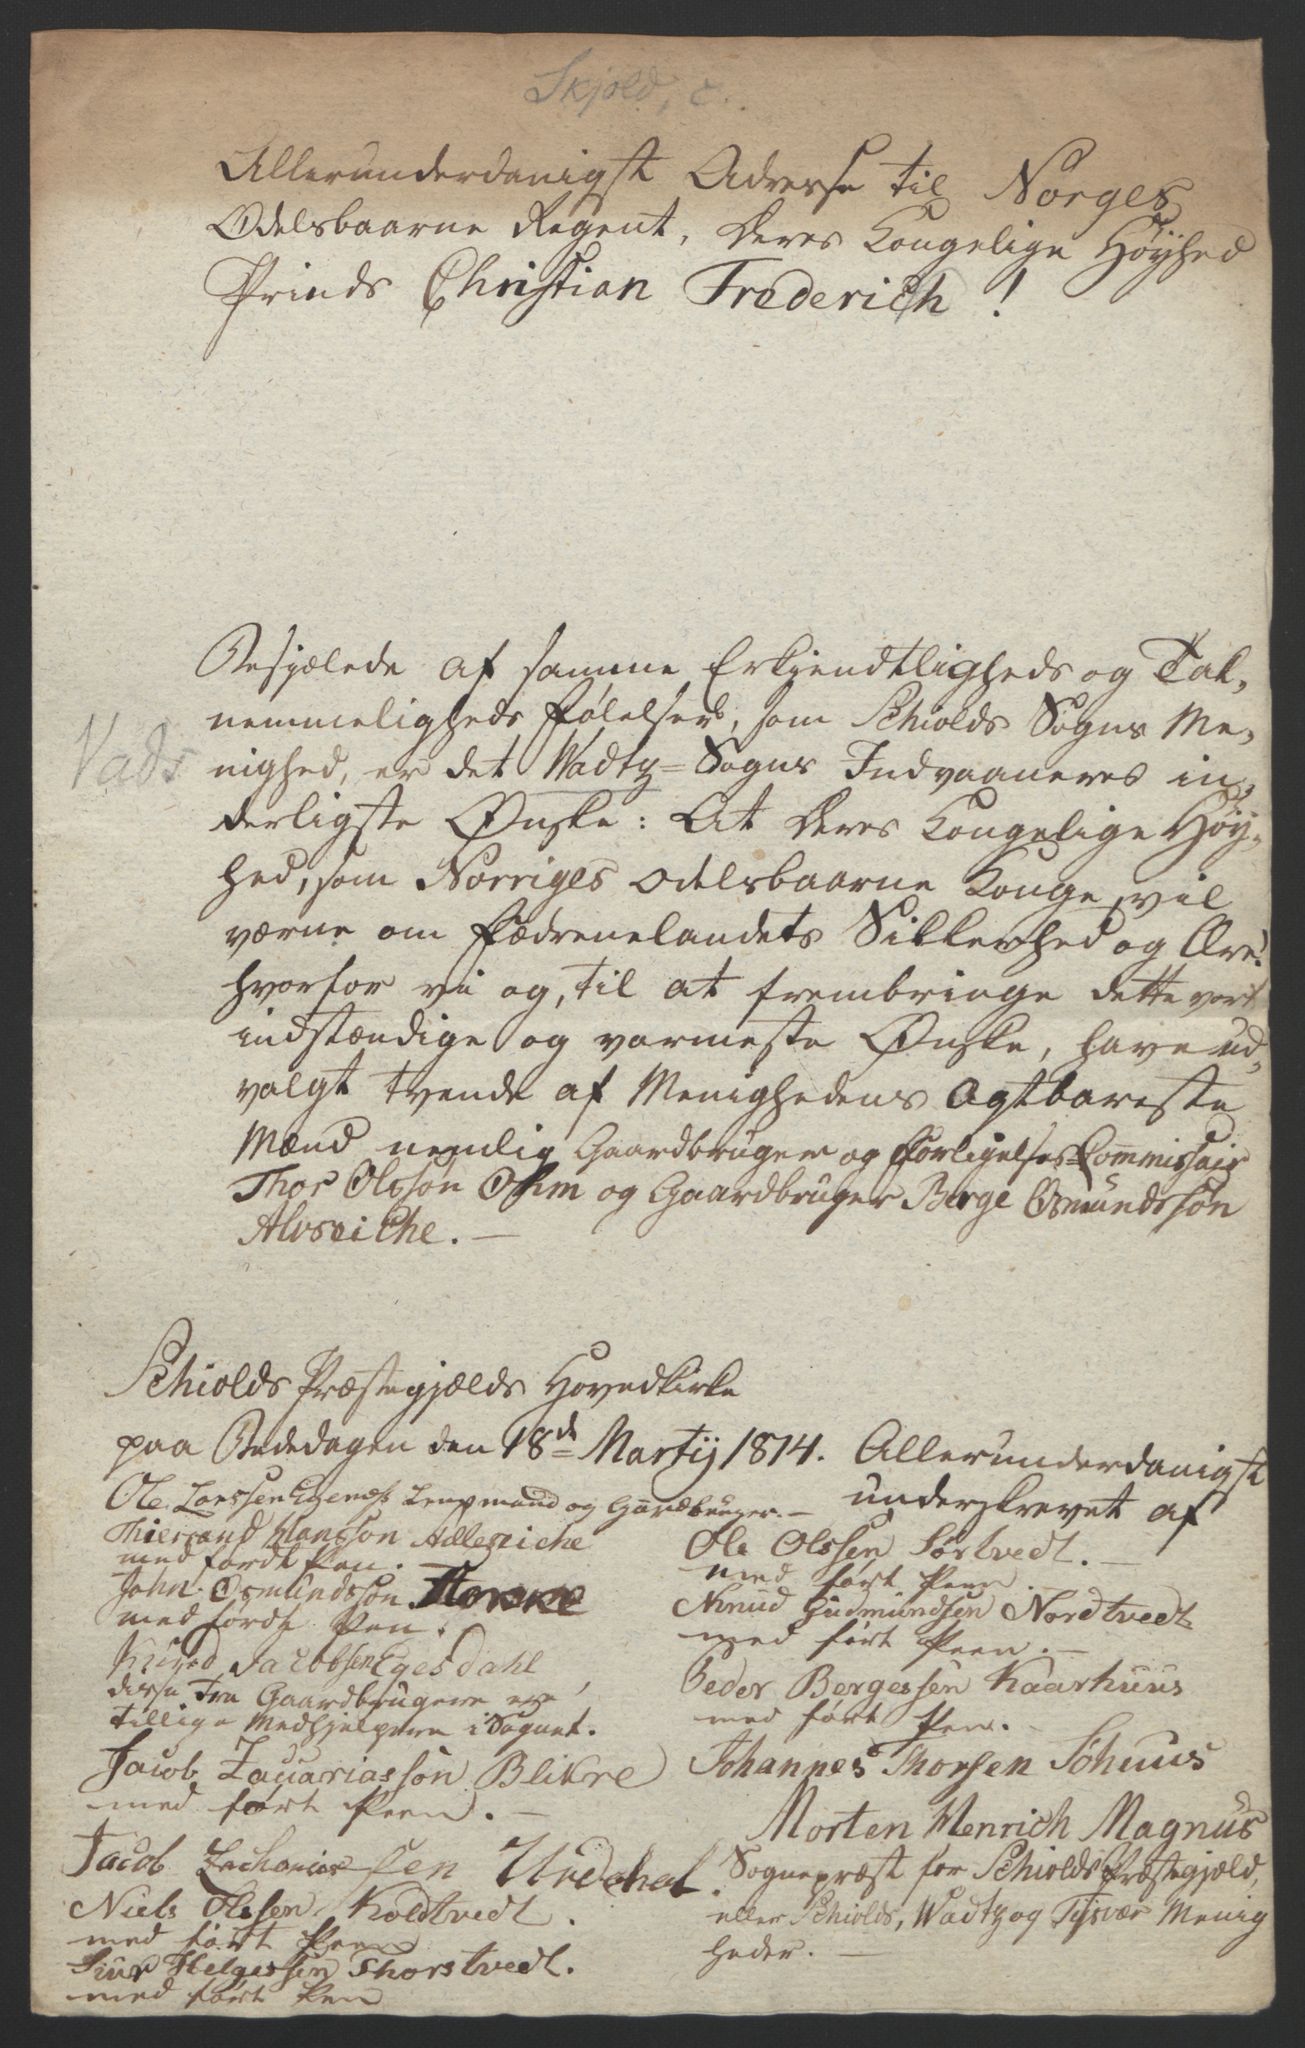 Skjold, c.
Allerunderdanigst Adresse til Norges
Odelsbaarne Regent, Deres Kongelige Høyhed
Prinds Christian Frederich !
Besjælede af samme Erkjendtligheds og Tak,
nemmeligheds Følelser, som Schiolds Sogns Me,
Vads
nighed, er det Wadtz=Sogns Indvaaneres in,
derligste Ønske: At Deres Kongelige Høy,
hed, som Norriges Odelsbaarne Konge, vil
værne om Fædrenelandets Sikkerhed og Ære!
hvorfor vi og, til at frembringe dette vort
indstændige og varmeste Ønske, have ud,
valgt tvende af Menighedens Agtbareste
Mænd nemlig Gaardbruger og Forligelses-Commissair
Thor Olssøn Ohm og Gaardbruger Berge Osmundssøn
Alvseiche. —
Schiolds Præstegjælds Hovedkirke
paa Bededagen den 18de Martij 1814. Allerunderdanigst
underskrevet af
Ole Larssen Egenæs Lensmand og Gardbruger. —
Hansson Adleseiche
med fordt Pen.
John Osmundsson
med fordt Pen.
Knud Jacobsen Egesdahl
disse Tre Gaardbrugere ere
tillige Medhjelpere i Sognet.
Jacob Zacariassøn Blikre
med ført Peen. —
Jacob Zachariassen
Niels Olssen Koldtvedt.
med ført Peen
Siur Helgessen Thorstvedt.
med ført Pen
Ole Olssen Sørtvedt. —
med ført Peen.
Knud Gudmundsen Nordtvedt
med ført Peen. —
Peder Bergessen Kaarhuus
med ført Pen. —
Johannes Thorsen Søhuus
Morten Henrich Magnus
Sognepræst for Schiolds Præstegjæld,
eller Schiolds, Wadtz og Tysvær Menig
heder. —